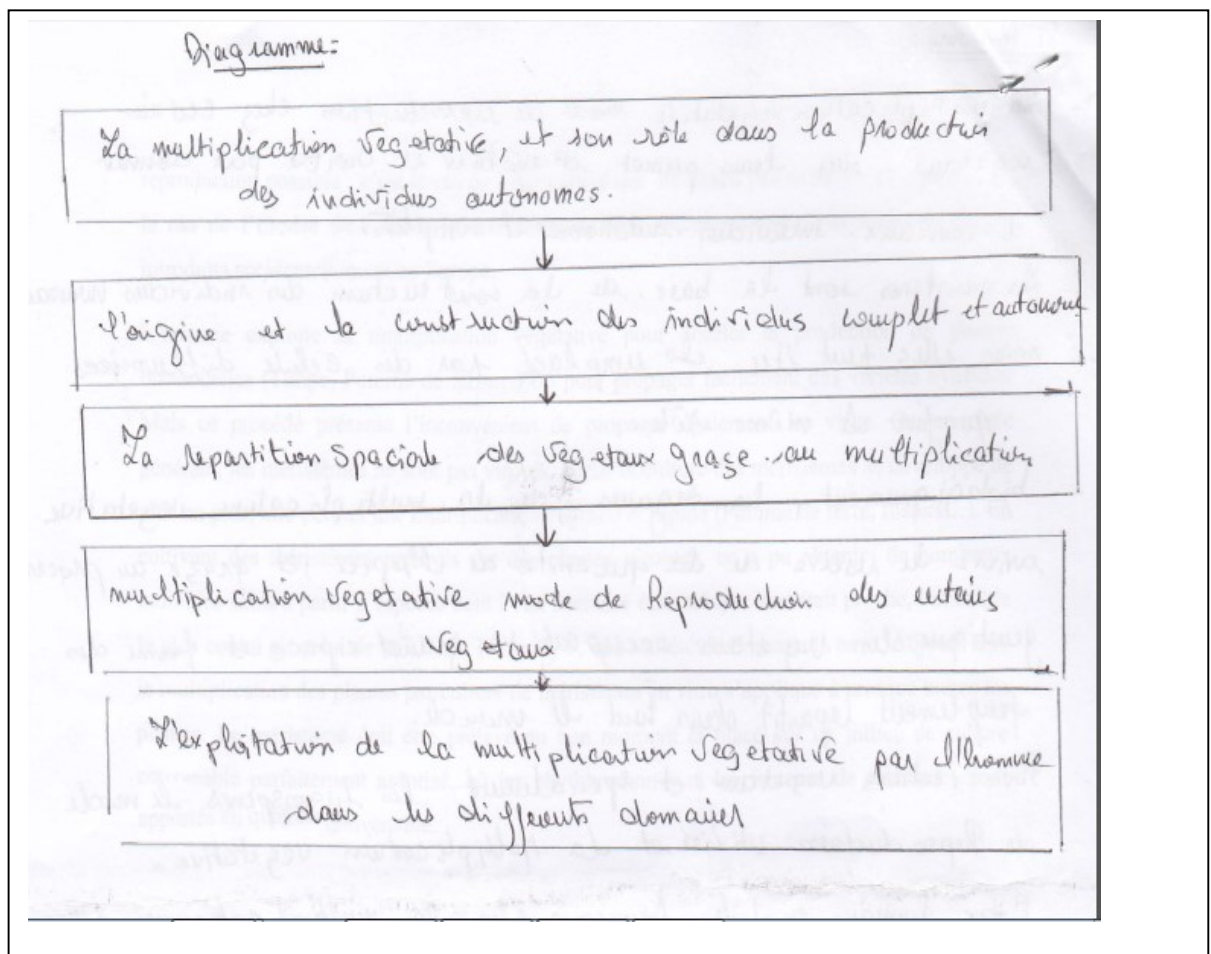 Diagramme:
La multiplication vegetative, et son rôle dans la production
des individus autonomes.
l'origine et la construction des individus complet et autonome
La repartition spaciale des vegetaux grase au multiplication
multiplication vegetative mode de Reproduction des certains
vegetaux
L'exploitation de la multiplication vegetative par l'homme
dans les differents domaines